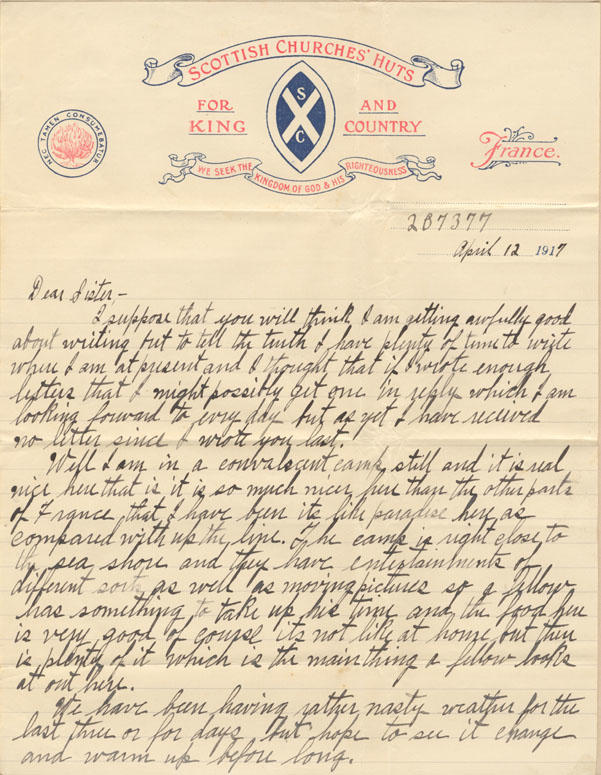 SCOTTISH CHURCHES' HUTS
FOR KING AND COUNTRY
S C
NEC TAMEN CONSUMEBATUR
WE SEEK THE KINGDOM OF GOD & HIS RIGHTEOUSNESS
France.
287377
April 12 1917
Dear Sister,-
I suppose that you will think I am getting awfully good
about writing but to tell the truth I have plenty of time to write
where I am at present and I thought that if I wrote enough
letters that I might possibly get one in reply which I am
looking forward to every day but as yet I have recieved
no letter since I wrote you last.
Well I am in a convalscent camp still and it is real
nice here that is it is so much nicer here than the other parts
of France that I have been its like paradise here as
compared with up the line. The camp is right close to
the sea shore and they have entertainments of
different sorts as well as moving pictures so a fellow
has something to take up his time and the food here
is very good of course its not like at home but there
is plenty of it which is the main thing a fellow looks
at out here.
We have been having rather nasty weather for the
last three or for days, but hope to see it change
and warm up before long.